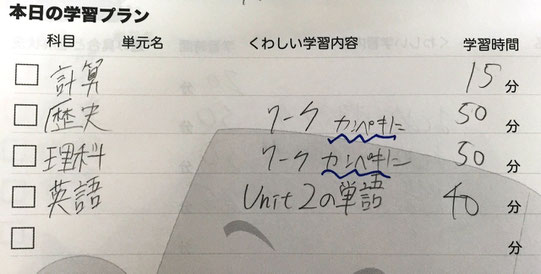 本日の学習プラン
科目 単元名 くわしい学習内容 学習時間
計算 15分
歴史 ワーク カンペキに 50分
理科 ワーク カンペキに 50分
英語 Unit 2の単語 40分
分